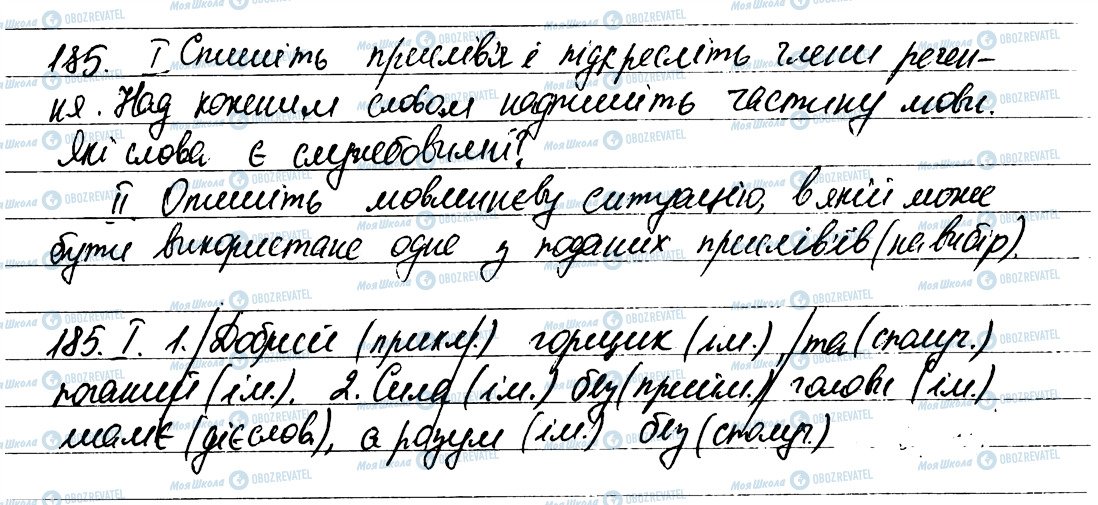 185. I Спишіть прислів'я і підкресліть члени речен-
ня. Над кожним словом надпишіть частину мови.
Які слова є службовими?
II Опишіть мовленнєву ситуацію, в якій може
бути використане одне з поданих прислів'їв (на вибір).
185. I. 1. Добрий (прикм.) горщик (ім.), та (сполуч.)
поганий (ім.). 2. Сила (ім.) без (прийм.) голови (ім.)
шаліє (дієслово), а розум (ім.) без (сполуч.)